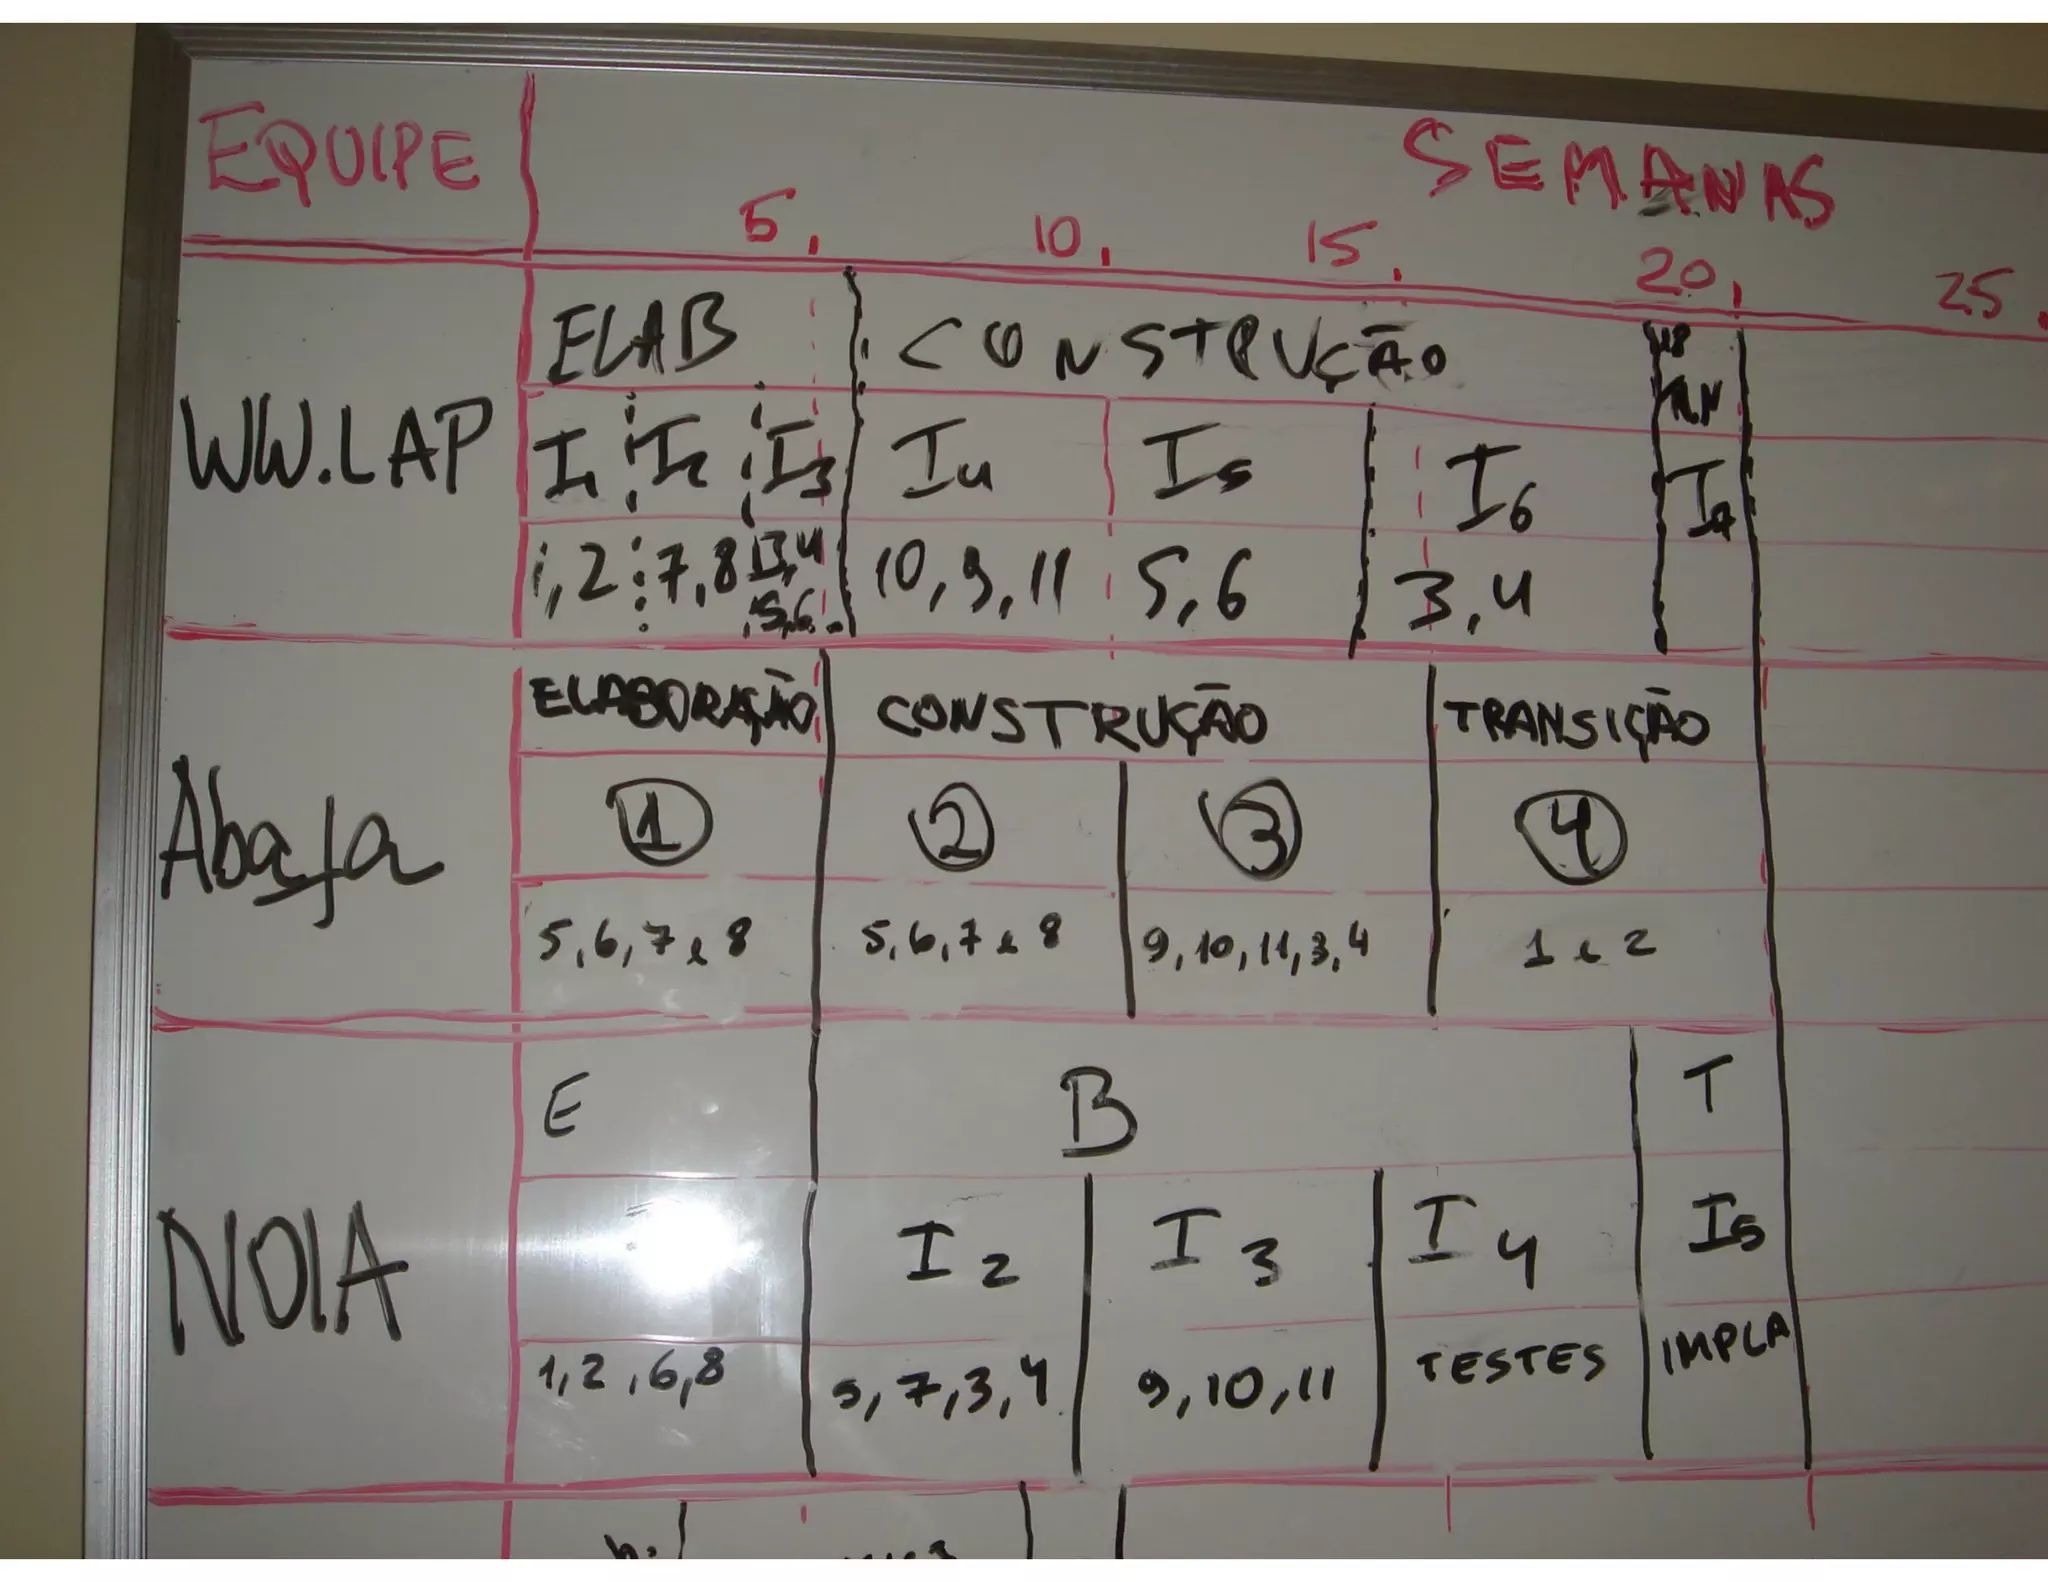 EQUIPE
SEMANAS
5, 10, 15, 20, 25
WW.LAP
ELAB CONSTRUÇÃO
I1 I2 I3 I4 I5 I6 I7
1,2 7,8 3,4 10,9,11 5,6 3,4
5,6
Abaja
ELABORAÇÃO CONSTRUÇÃO TRANSIÇÃO
1 2 3 4
5,6,7 e 8 5,6,7 e 8 9,10,11,3,4 1 e 2
NOIA
E B T
I2 I3 I4 I5
1,2,6,8 5,7,3,4 9,10,11 TESTES IMPLA